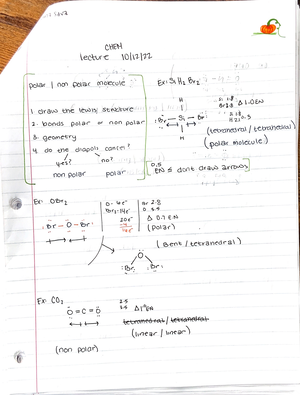 CHEM
lecture 10/12/22
polar / non polar molecule
1 draw the lewis structure
2. bonds polar or non polar
3 geometry
4 do the dropoli cancel?
yes? no?
non polar polar
Ex: SiH2 Br2
H
:Br – Si – Br:
H
Δ 1.0 EN
(tetrahedral / tetrahedral)
(polar molecule)
0.5
EN ≤ dont draw arrows
Ex: OBr2
:Br – O – Br:
O- 6e⁻
Br2-14e⁻
20e⁻
Br 2.8
O 3.5
Δ 0.7 EN
(polar)
O
:Br: :Br:
(Bent / tetrahedral)
Ex: CO2
O = C = O
2.5
3.5 Δ 1.0 EN
tetrahedral / tetrahedral
(linear / linear)
(non polar)